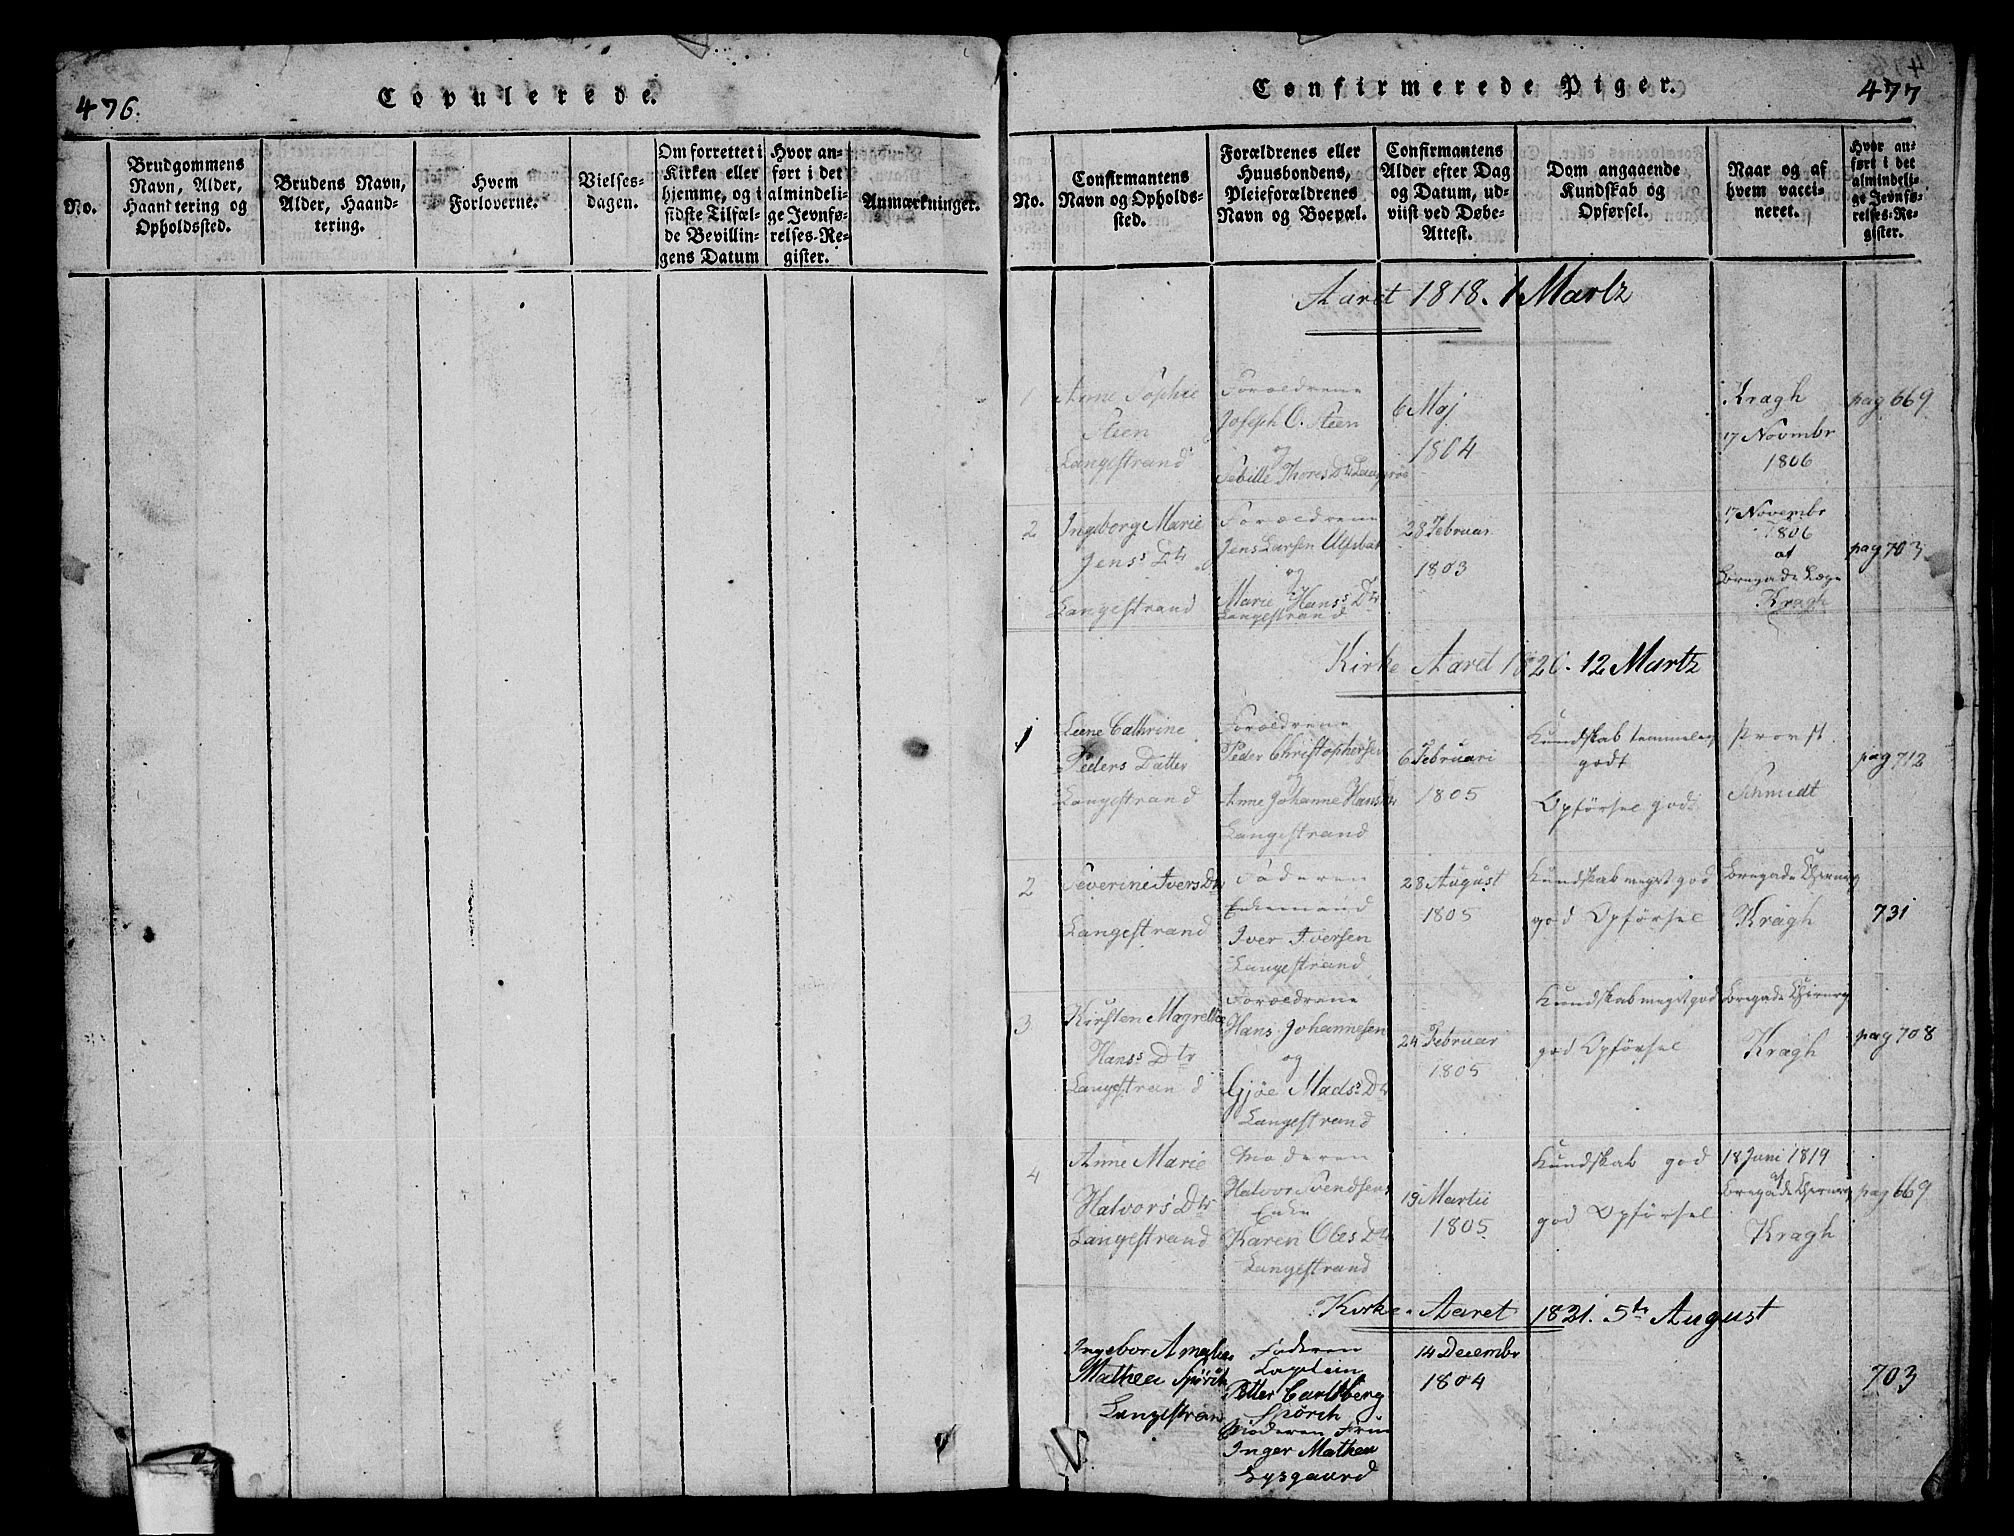 476.
Copulerede.
No.
Brudgommens
Navn, Alder,
Haandtering og
Opholdssted.
Brudens Navn,
Alder, Haand-
tering.
Hvem
Forloverne.
Vielses-
dagen.
Om forrettet i
Kirken eller
hjemme, og i
sidste Tilfæl-
de Bevillin-
gens Datum
Hvor an-
ført i det
almindeli-
ge Jevnfø-
relses-Re-
gister.
Anmærkninger.
Confirmerede Piger.
477
No.
Confirmantens
Navn og Opholds-
sted.
Forældrenes eller
Huusbondens,
Pleieforældrenes
Navn og Boepæl.
Confirmantens
Alder efter Dag
og Datum, ud-
viist ved Døbe-
Attest.
Dom angaaende
Kundskab og
Opførsel.
Naar og af
hvem vacci-
neret.
Hvor an-
ført i det
almindeli-
ge Jevnfø-
relses-Re-
gister.
Aaret 1818. 1 Martz
1
Anne Sophie
Steen
Langestrand
Forældrene
Joseph O. Steen
og
Sebille Thores Dtr
6 Maj
1804
Kragh
17 Novmbr
1806
pag 669
2
Ingeborg Marie
Jens's Dtr
Langestrand
Forældrene
Jens Larsen
og
Marie Hans's Dtr
Langestrand
28 Februar
1803
17 Novembr
1806
af
Bregade Læge
Kragh
pag 703
Kirke Aaret 1820. 12 Martz
1
Leene Cathrine
Peders Datter
Langestrand
Forældrene
Peder Christophersen
og
Anne Johanne Hans Dtr
Langestrand
6 Februari
1805
Kundskab temmelig
godt
Opførsel god
Provst
Schmidt
pag 712
2
Severine Ivers Dtr
Langestrand
Faderen
Enkemand
Iver Iversen
Langestrand
28 August
1805
Kundskab meget god
god Opførsel
Bregade Chirurg
Kragh
731
3
Kirsten Magrethe
Hans's Dtr
Langestrand
Forældrene
Hans Johannesen
og
Gjøe Mads's Dtr
Langestrand
24 Februar
1805
Kundskab meget god
god Opførsel
Bregade Chirurg
Kragh
pag 708
4
Anne Marie
Halvors Dtr
Langestrand
Moderen
Halvor Svendsens
Enke
Karen Oles Dtr
Langestrand
19 Martii
1805
Kundskab god
god Opførsel
18 Juni 1819
af
Bregade Chirurg
Kragh
pag 669
Kirke-Aaret 1821. 5te August
Ingebor Amalia
Mathea Spörck
Langestrand
Faderen
Captein
Petter Carlsberg
Spörck
Moderen Frue
Inger Mathea
Lysgaard
14 Decembr
1804
703